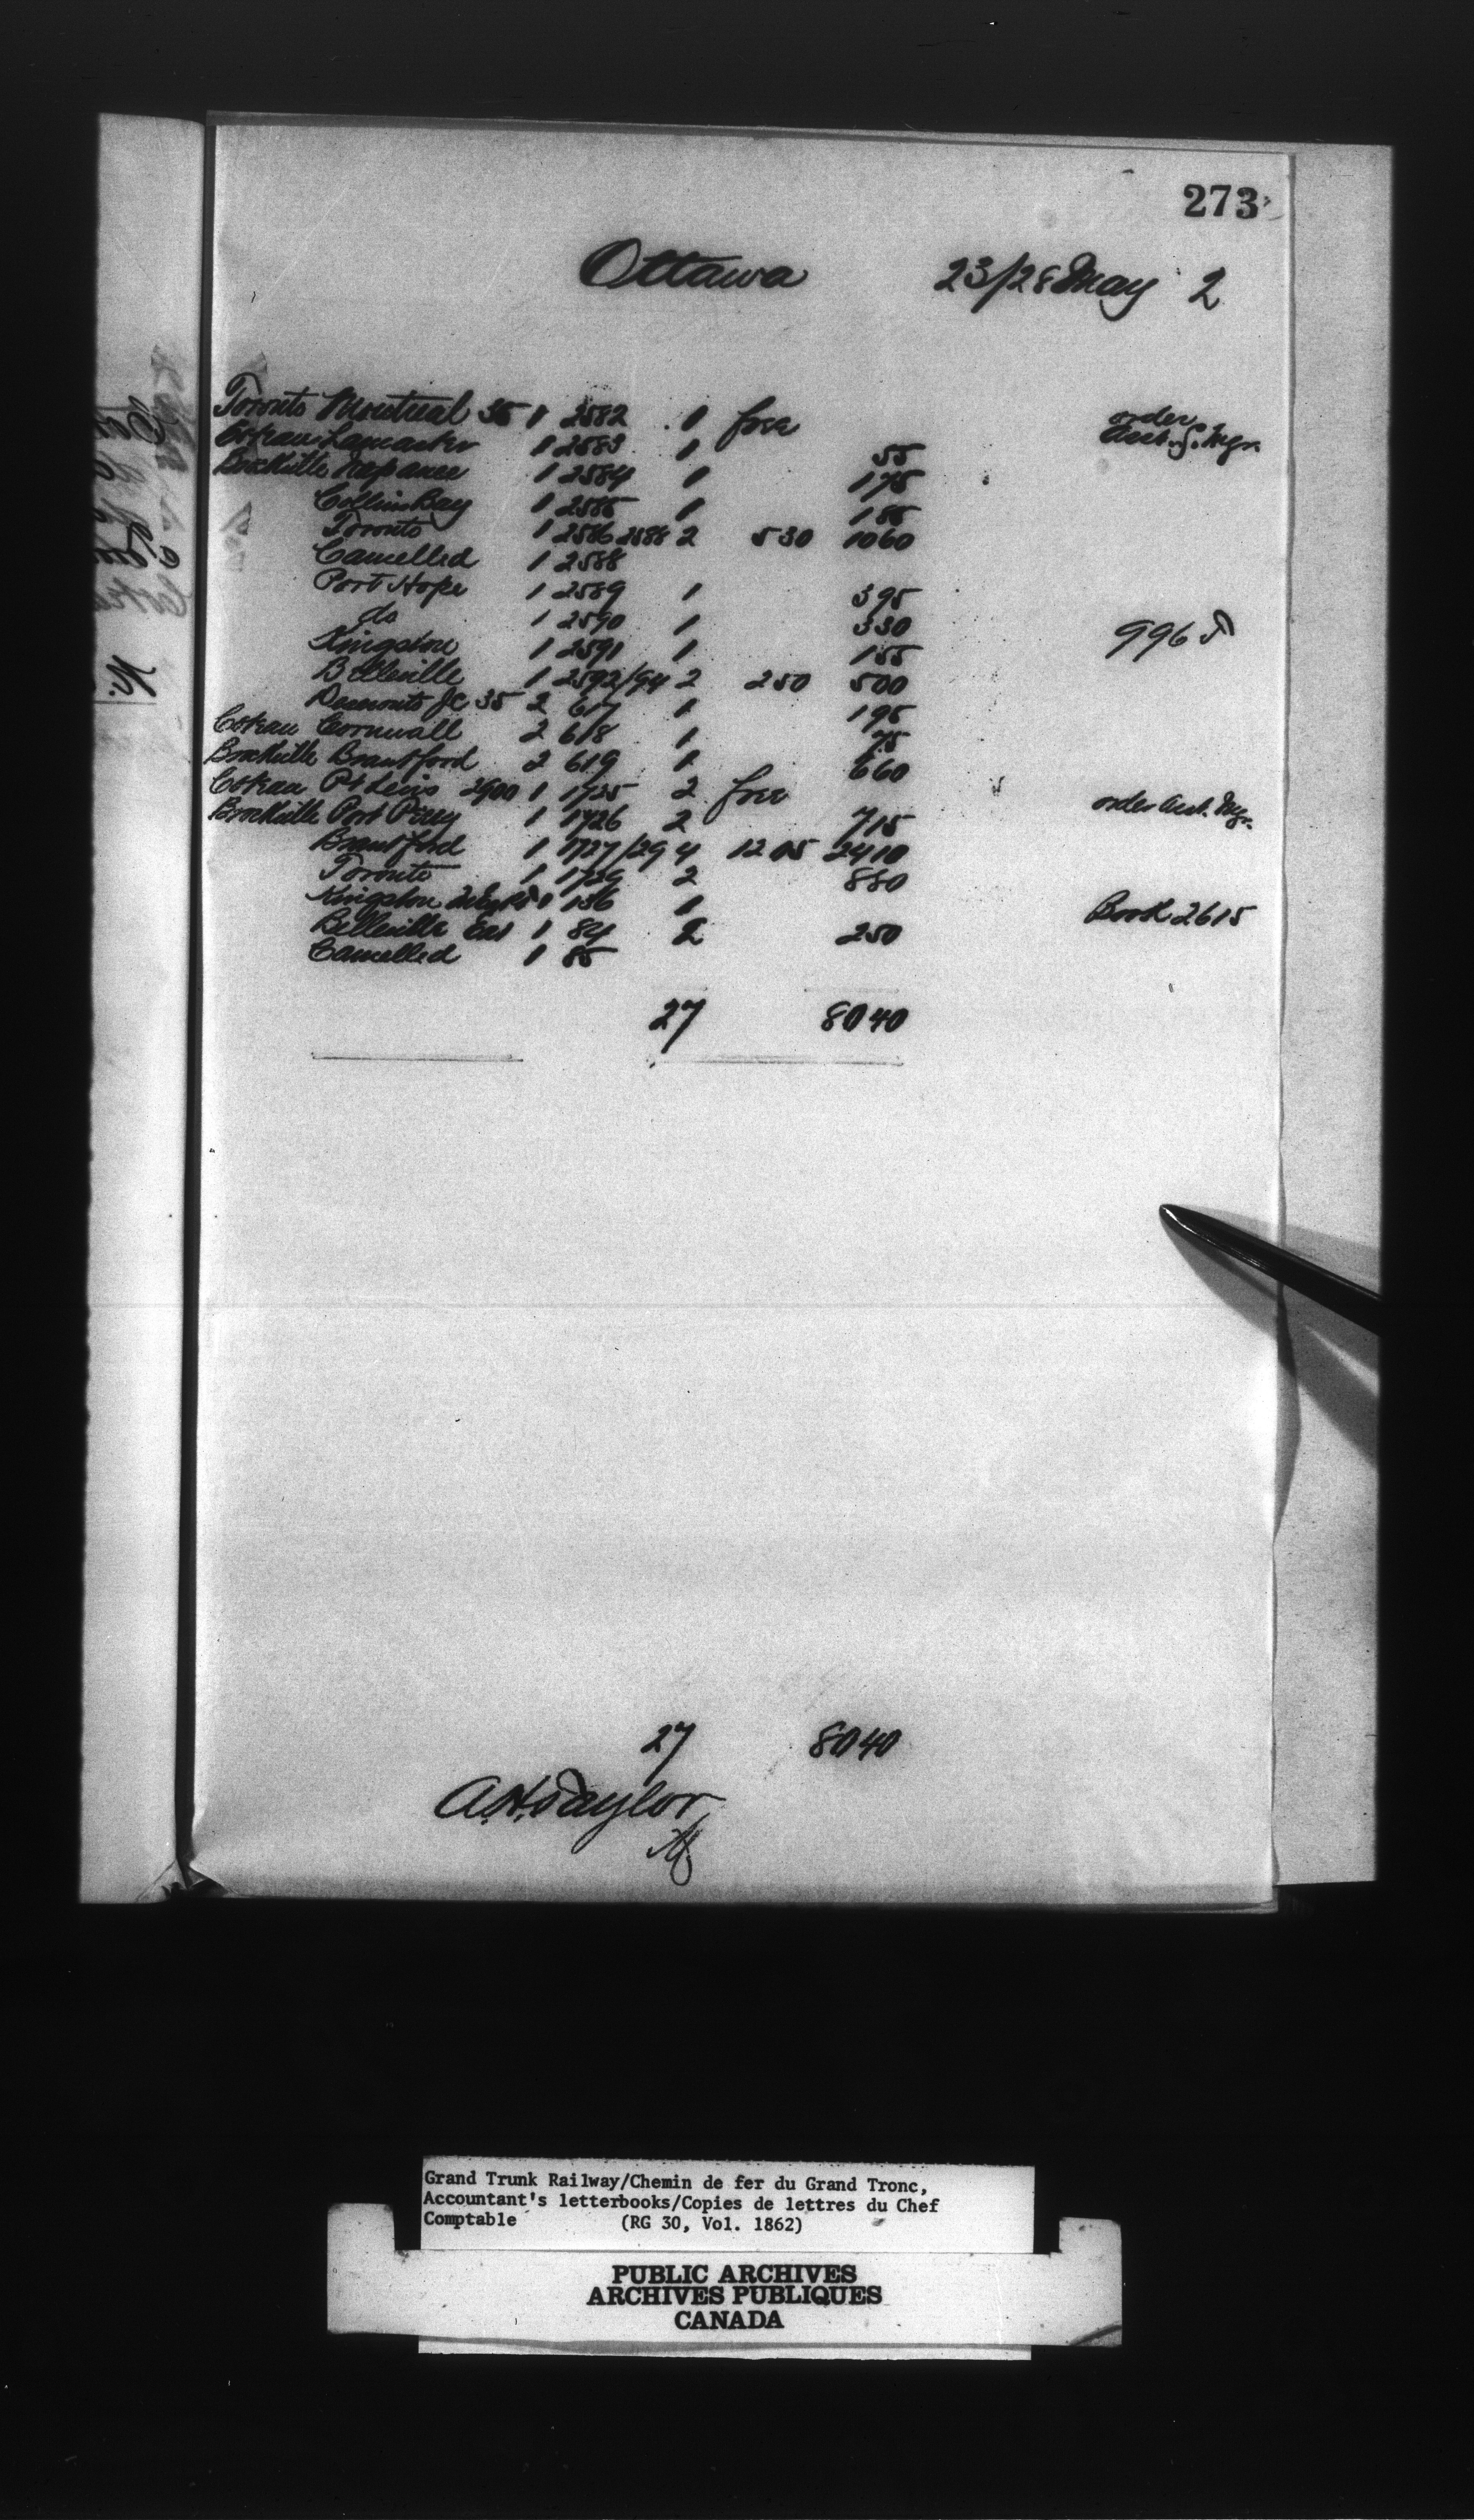 273
Ottawa 23/28 May 2
Toronto Montreal 35 1 2582 1 free order Asst. G. Mgr.
Coteau Lancaster 1 2583 1 55
Brockville Napanee 1 2584 1 175
Collins Bay 1 2585 1 155
Toronto 1 2586 2588 2 530 1060
Cancelled 1 2588
Port Hope 1 2589 1 395
do 1 2590 1 330 996
Kingston 1 2591 1 155
Belleville 1 2592/94 2 250 500
Deseronto Jc 35 2 617 1 195
Coteau Cornwall 2 618 1 75
Brockville Brantford 2 619 1 660
Coteau Pt Levis 2900 1 1725 2 free order Asst. Mgr.
Brockville Port Perry 1 1726 2 715
Brantford 1 1727/29 4 1205 2410
Toronto 1 1729 2 880
Kingston 1 136 1 Book 2615
Belleville Ex 1 84 2 250
Cancelled 1 85
27 8040
27 8040
A. H. Taylor
Grand Trunk Railway/Chemin de fer du Grand Tronc,
Accountant's letterbooks/Copies de lettres du Chef
Comptable (RG 30, Vol. 1862)
PUBLIC ARCHIVES
ARCHIVES PUBLIQUES
CANADA